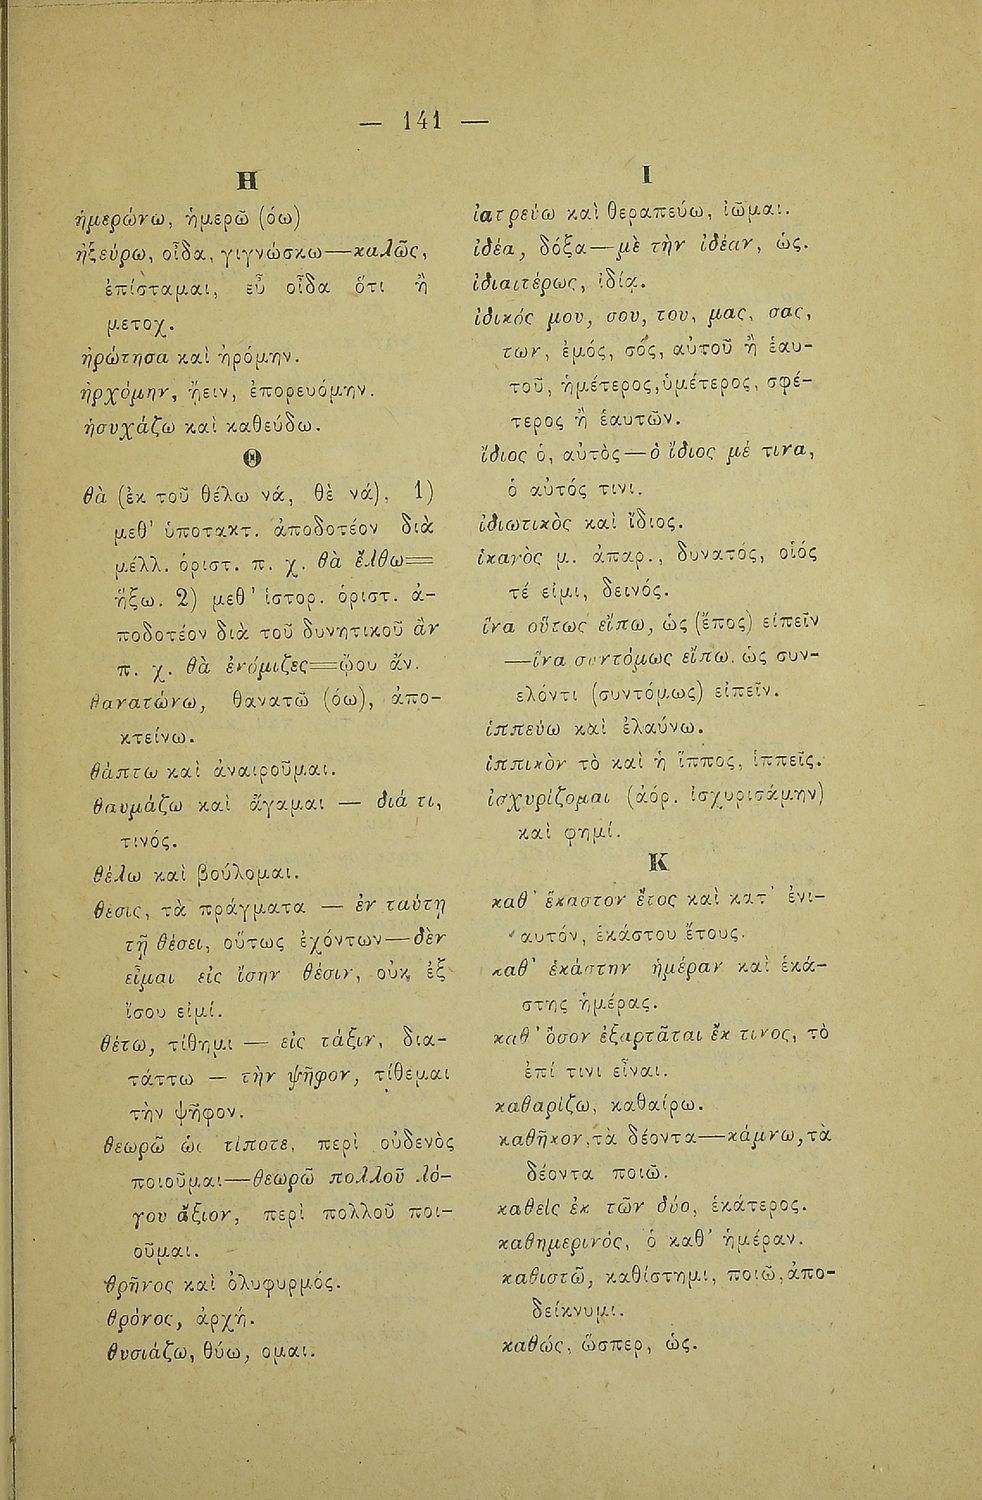 — 141 —
Η
ἡμερώνω, ἡμερῶ (όω)
ἠξεύρω, οἶδα, γιγνώσκω—καλῶς,
ἐπίσταμαι, εὖ οἶδα ὅτι ἢ
μετοχ.
ἠρώτησα καὶ ἠρόμην.
ἠρχόμην, ᾔειν, ἐπορευόμην.
ἡσυχάζω καὶ καθεύδω.
Θ
θὰ (ἐκ τοῦ θέλω νά, θὲ νά). 1)
μεθ' ὑποτακτ. ἀποδοτέον διὰ
μέλλ. ὁριστ. π. χ. θὰ ἔλθω=
ἥξω. 2) μεθ' ἱστορ. ὁριστ. ἀ-
ποδοτέον διὰ τοῦ δυνητικοῦ ἂν
π. χ. θὰ ἐνόμιζες=ᾤου ἄν.
θανατώνω, θανατῶ (όω), ἀπο-
κτείνω.
θάπτω καὶ ἀναιροῦμαι.
θαυμάζω καὶ ἄγαμαι — διά τι,
τινός.
θέλω καὶ βούλομαι.
θέσις, τὰ πράγματα — ἐν ταύτῃ
τῇ θέσει, οὕτως ἐχόντων—δὲν
εἶμαι εἰς ἴσην θέσιν, οὐκ ἐξ
ἴσου εἰμί.
θέτω, τίθημι — εἰς τάξιν, δια-
τάττω — τὴν ψῆφον, τίθεμαι
τὴν ψῆφον.
θεωρῶ ὡς τίποτε, περὶ οὐδενὸς
ποιοῦμαι—θεωρῶ πολλοῦ λό-
γου ἄξιον, περὶ πολλοῦ ποι-
οῦμαι.
θρῆνος καὶ ὀλυφυρμός.
θρόνος, ἀρχή.
θυσιάζω, θύω, ομαι.
Ι
ἰατρεύω καὶ θεραπεύω, ἰῶμαι.
ἰδέα, δόξα—μὲ τὴν ἰδέαν, ὡς.
ἰδιαιτέρως, ἰδίᾳ.
ἰδικός μου, σου, του, μας, σας,
των, ἐμός, σός, αὐτοῦ ἢ ἑαυ-
τοῦ, ἡμέτερος, ὑμέτερος, σφέ-
τερος ἢ ἑαυτῶν.
ἴδιος ὁ, αὐτὸς—ὁ ἴδιος μέ τινα,
ὁ αὐτός τινι.
ἰδιωτικὸς καὶ ἴδιος.
ἱκανὸς μ. ἀπαρ., δυνατός, οἷός
τέ εἰμι, δεινός.
ἵνα οὕτως εἴπω, ὡς (ἔπος) εἰπεῖν
—ἵνα συντόμως εἴπω, ὡς συν-
ελόντι (συντόμως) εἰπεῖν.
ἱππεύω καὶ ἐλαύνω.
ἱππικὸν τὸ καὶ ἡ ἵππος, ἱππεῖς.
ἰσχυρίζομαι (ἀόρ. ἰσχυρισάμην)
καὶ φημί.
Κ
καθ' ἕκαστον ἔτος καὶ κατ' ἐνι-
αυτόν, ἑκάστου ἔτους.
καθ' ἑκάστην ἡμέραν καὶ ἑκά-
στης ἡμέρας.
καθ' ὅσον ἐξαρτᾶται ἔκ τινος, τὸ
ἐπί τινι εἶναι.
καθαρίζω, καθαίρω.
καθῆκον, τὰ δέοντα—κάμνω, τὰ
δέοντα ποιῶ.
καθεὶς ἐκ τῶν δύο, ἑκάτερος.
καθημερινός, ὁ καθ' ἡμέραν.
καθιστῶ, καθίστημι, ποιῶ, ἀπο-
δείκνυμι.
καθώς, ὥσπερ, ὡς.